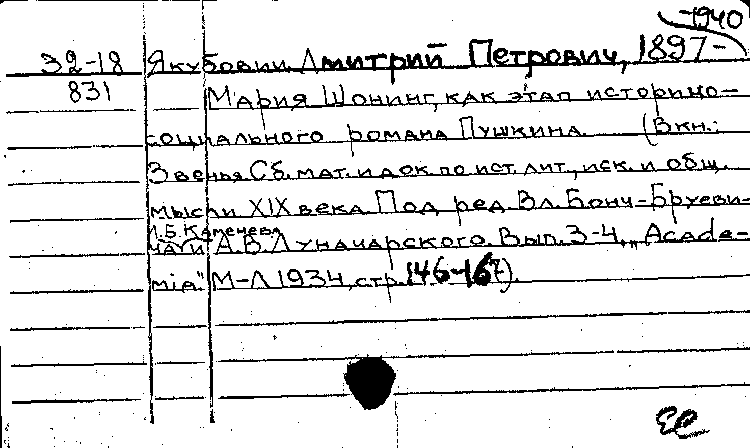 -1940
32-18 Якубович Дмитрий Петрович, 1897-
831 Мария Шонинг, как этап историко-
социального романа Пушкина (В кн.:
Звенья Сб. мат. и док по ист. лит., иск. и общ.
мысли XIX века. Под ред Вл. Бонч-Бруеви-
Л.Б. Каменева
ча и А.В. Луначарского. Вып. 3-4, „Acade-
mia." М-Л 1934, стр. 146-167).